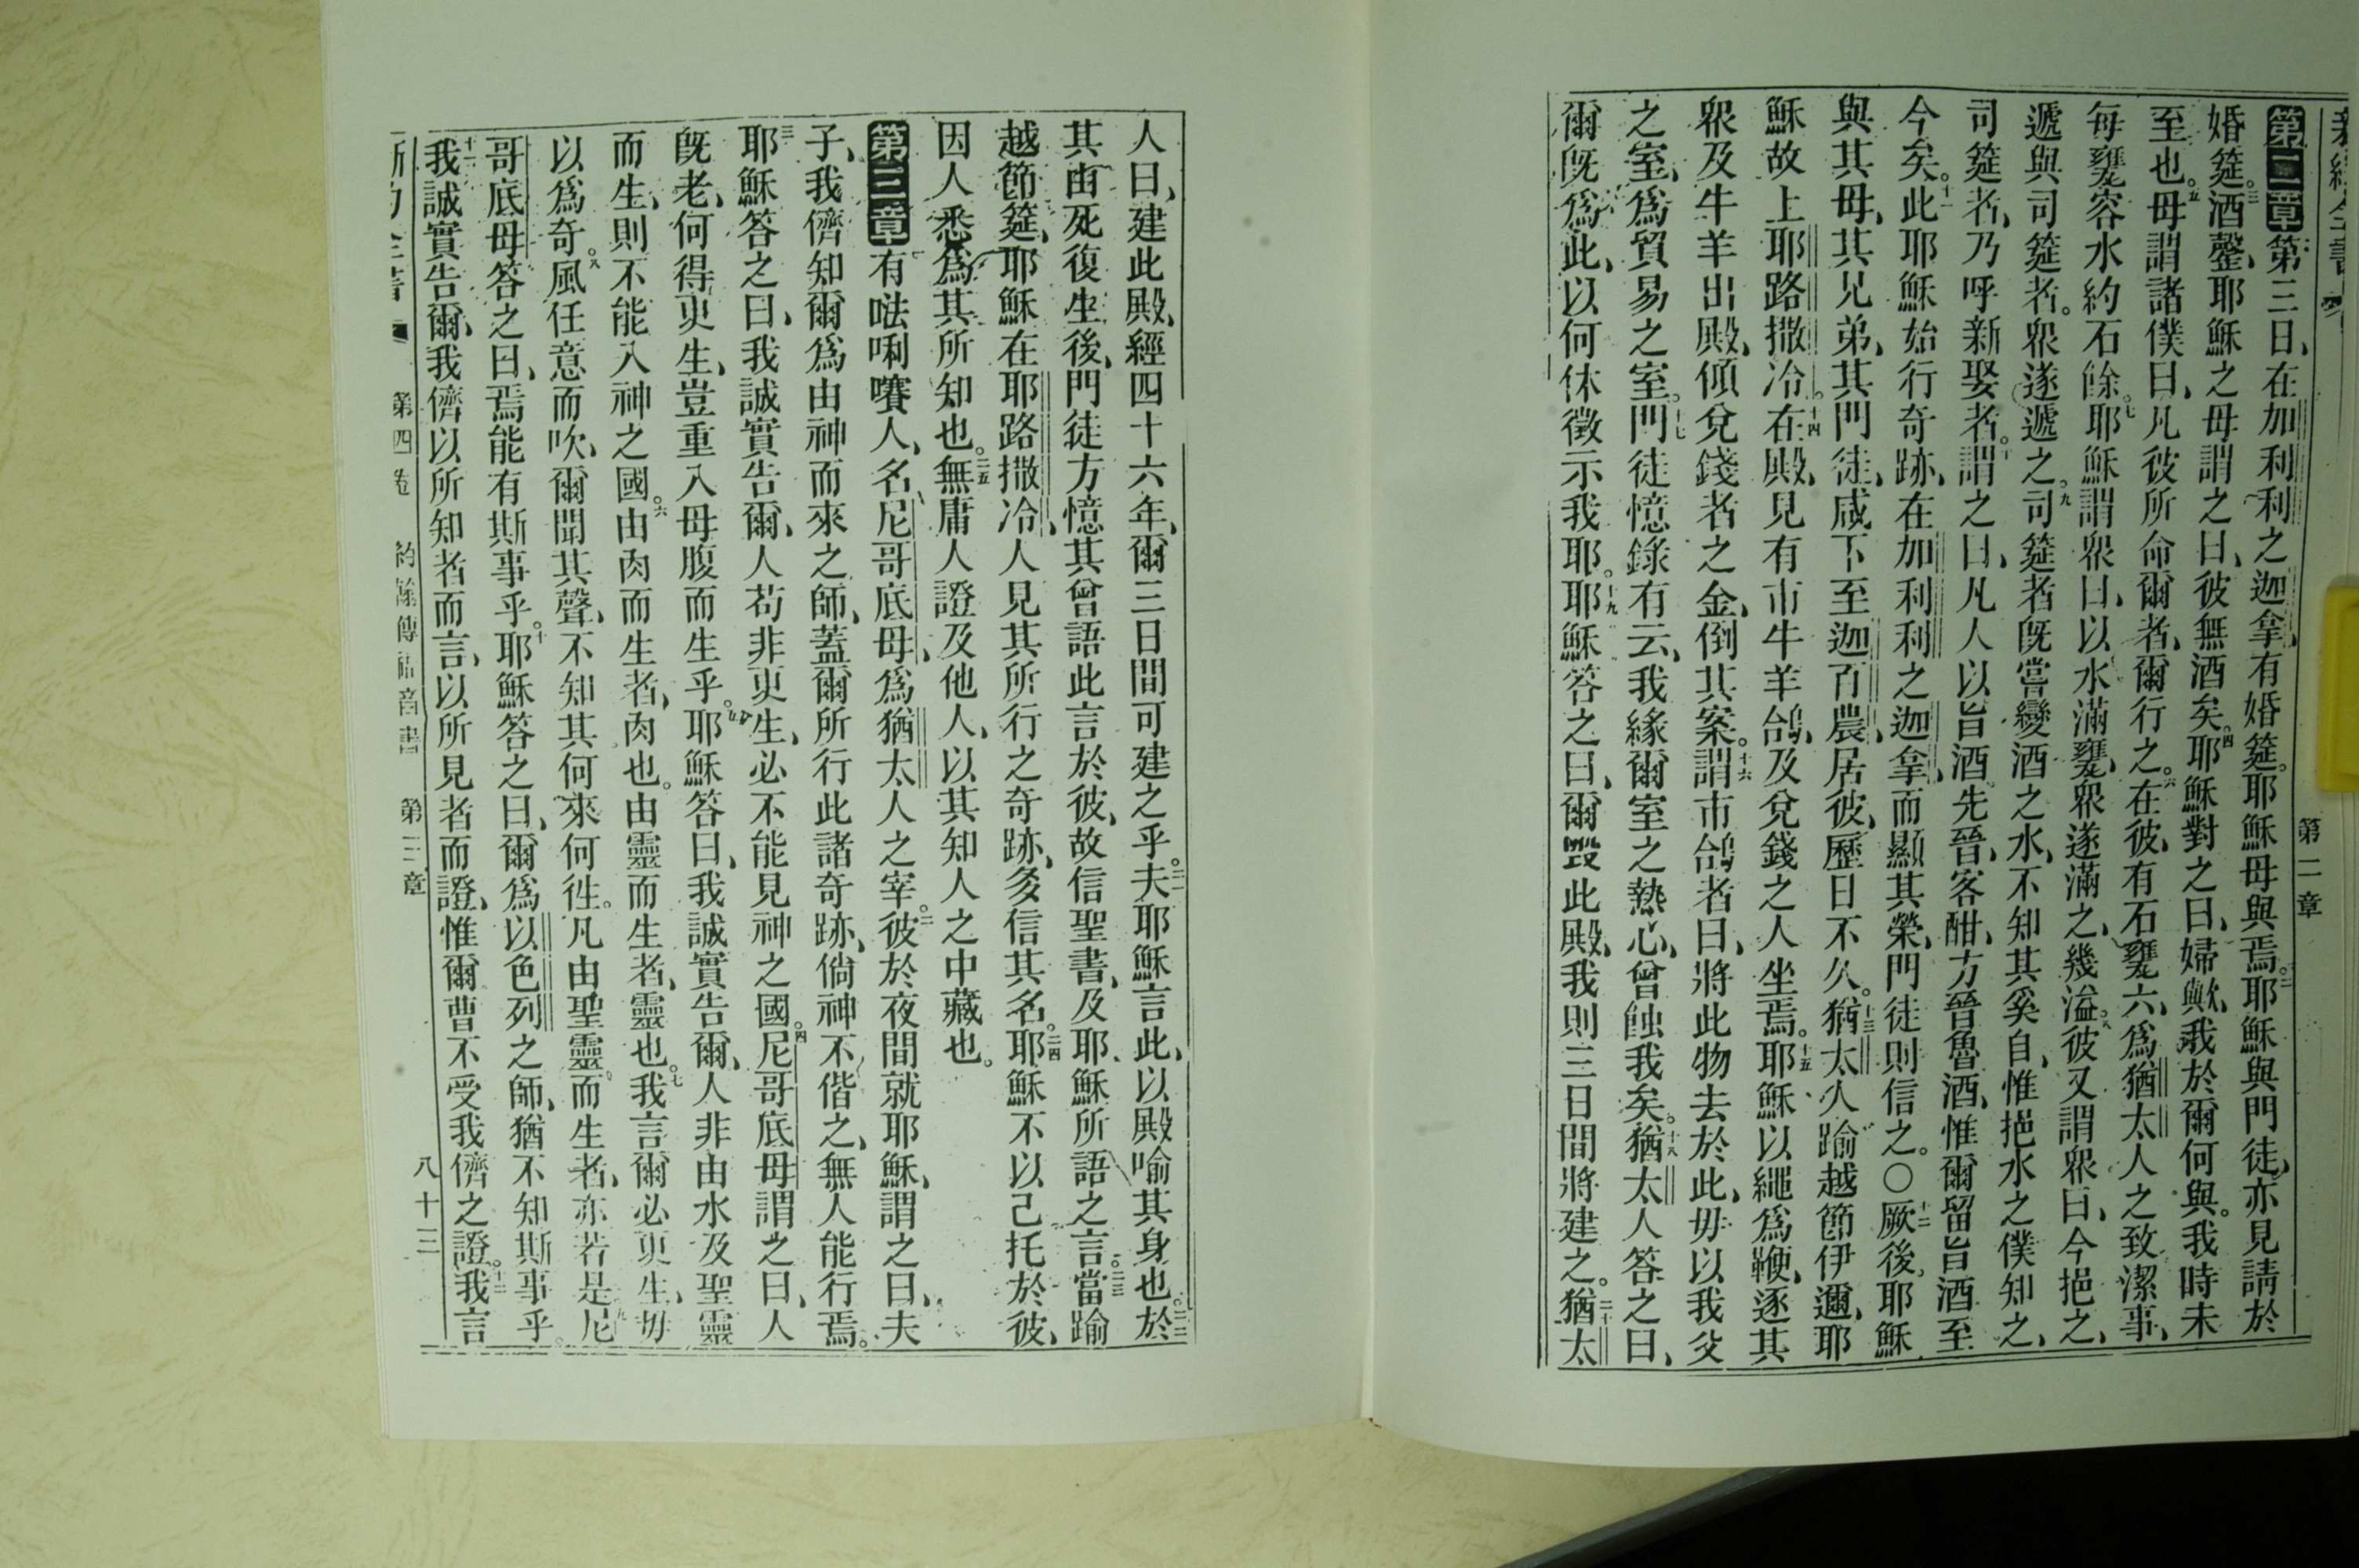 第二章
第二章第三日、在加利利之迦拿、有婚筵。耶穌母與焉。二耶穌與門徒、亦見請於
婚筵。三酒罄、耶穌之母謂之曰、彼無酒矣。四耶穌對之曰、婦歟、我於爾何與。我時未
至也。五母謂諸僕曰、凡彼所命爾者、爾行之。六在彼、有石甕六、爲猶太人之致潔事、
每甕容水約石餘。七耶穌謂眾曰、以水滿甕、眾遂滿之、幾溢。八彼又謂眾曰、今挹之、
遞與司筵者。眾遂遞之。九司筵者既嘗變酒之水、不知其奚自、惟挹水之僕知之、
司筵者、乃呼新娶者。十謂之曰、凡人以旨酒先晉、客酣、方晉魯酒、惟爾留旨酒至
今矣。十一此耶穌始行奇跡、在加利利之迦拿、而顯其榮、門徒則信之。〇十二厥後、耶穌
與其母、其兄弟、其門徒、咸下至迦百農、居彼、歷日不久。十三猶太人踰越節伊邇、耶
穌故上耶路撒冷。十四在殿、見有市牛羊鴿、及兌錢之人坐焉。十五耶穌以繩爲鞭、逐其
眾及牛羊出殿、傾兌錢者之金、倒其案。十六謂市鴿者曰、將此物去於此、毋以我父
之室、爲貿易之室。十七門徒憶錄有云、我緣爾室之熱心、曾蝕我矣。十八猶太人答之曰、
爾既爲此、以何休徵示我耶。十九耶穌答之曰、爾毀此殿、我則三日間將建之。二十猶太
人曰、建此殿、經四十六年、爾三日間可建之乎。二一夫耶穌言此、以殿喻其身也。二二於
其由死復生後、門徒方憶其曾語此言於彼、故信聖書、及耶穌所語之言。二三當踰
越節筵、耶穌在耶路撒冷、人見其所行之奇跡、多信其名。二四耶穌不以己托於彼、
因人悉爲其所知也。二五無庸人證及他人、以其知人之中藏也。
第三章有𠵽唎㘔人、名尼哥底母、爲猶太人之宰。二彼於夜間就耶穌、謂之曰、夫
子、我儕知爾爲由神而來之師、蓋爾所行此諸奇跡、倘神不偕之、無人能行焉。
三耶穌答之曰、我誠實告爾、人苟非更生、必不能見神之國。四尼哥底母謂之曰、人
既老、何得更生、豈重入母腹而生乎。五耶穌答曰、我誠實告爾、人非由水及聖靈
而生、則不能入神之國。六由肉而生者、肉也。由靈而生者、靈也。七我言爾必更生、毋
以爲奇。八風任意而吹、爾聞其聲、不知其何來何往。凡由聖靈而生者、亦若是。九尼
哥底母答之曰、焉能有斯事乎。十耶穌答之曰、爾爲以色列之師、猶不知斯事乎。
十一我誠實告爾、我儕以所知者而言、以所見者而證、惟爾曹不受我儕之證。十二我言
第四卷 約翰傳福音書 第三章 八十三